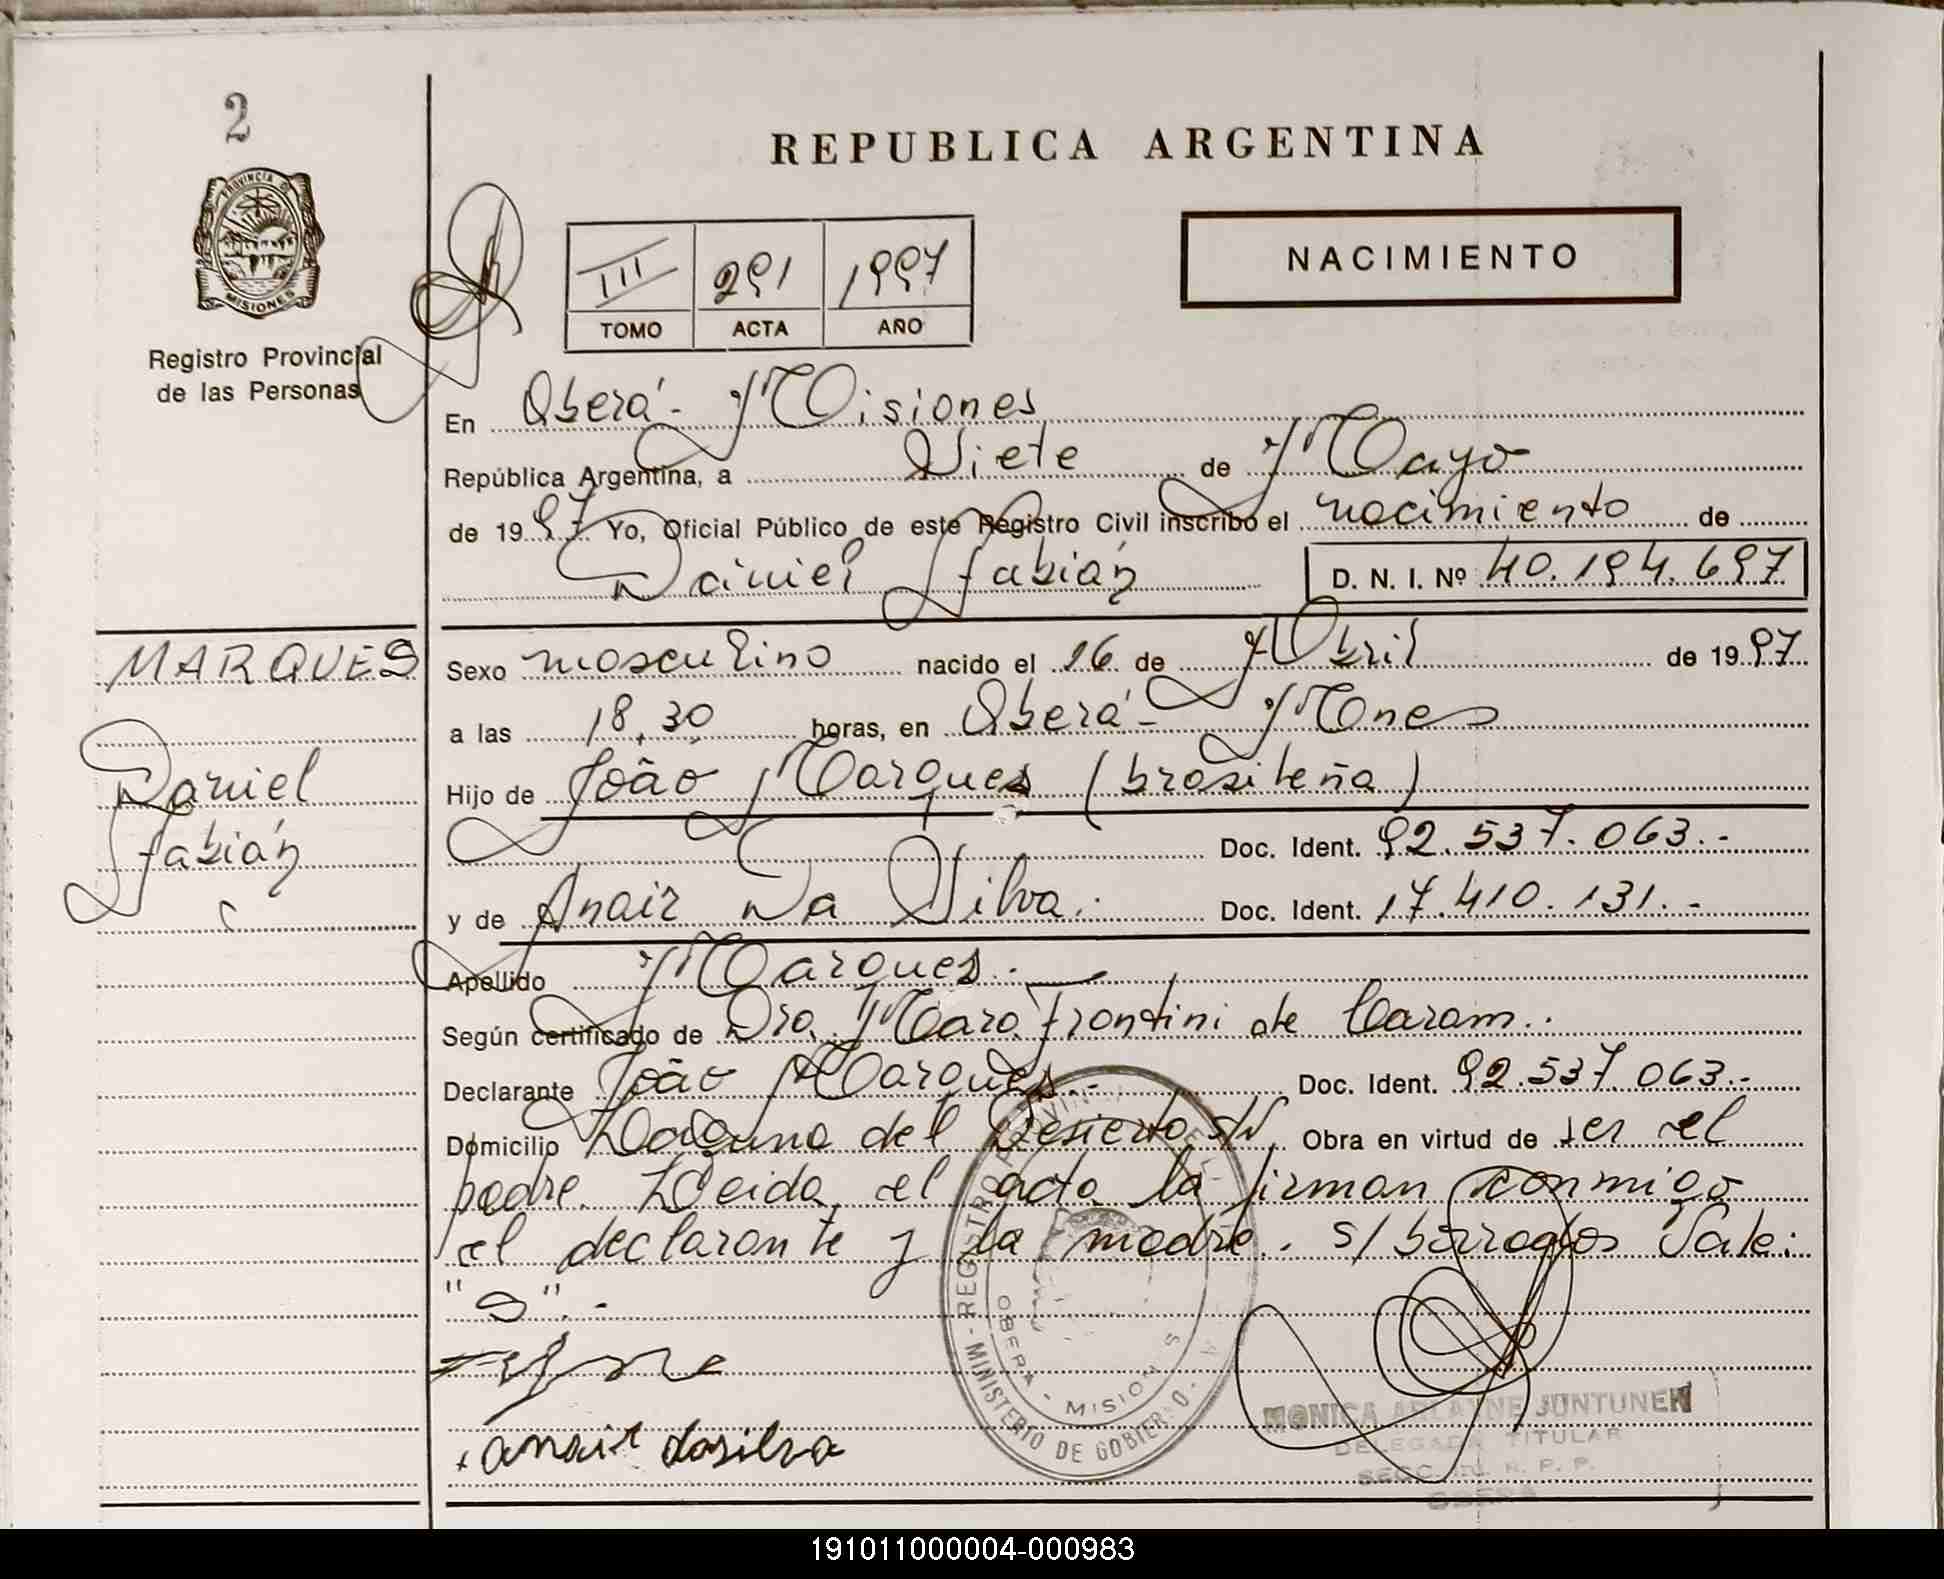 2
REPUBLICA ARGENTINA
PROVINCIA DE
MISIONES
Registro Provincial
de las Personas
III 291 1997
TOMO ACTA AÑO
NACIMIENTO
En Oberá - Misiones
República Argentina, a Siete de Mayo
de 1997 Yo, Oficial Público de este Registro Civil inscribo el nacimiento de
Daniel Fabián D. N. I. Nº 40.194.697
MARQUES
Daniel
Fabián
Sexo masculino nacido el 16 de Abril de 1997
a las 18,30 horas, en Oberá - Mones
Hijo de João Marques (brasileña)
Doc. Ident. 92.537.063.-
y de Anair Da Silva.- Doc. Ident. 17.410.131.-
Apellido Marques.-
Según certificado de Dra. Mara Frontini de Caram.-
Declarante João Marques.- Doc. Ident. 92.537.063.-
Domicilio Laguna del Desierto s/N Obra en virtud de ser el
padre. Leida el acta la firman conmigo
el declarante y la madre. s/borrados Vale:
"S".-
anair dasilva
REGISTRO
OBERA - MISIONES
MINISTERIO DE GOBIERNO
MONICA ARLAYNE JUNTUNEN
DELEGADA TITULAR
R. P. P.
OBERA
191011000004-000983